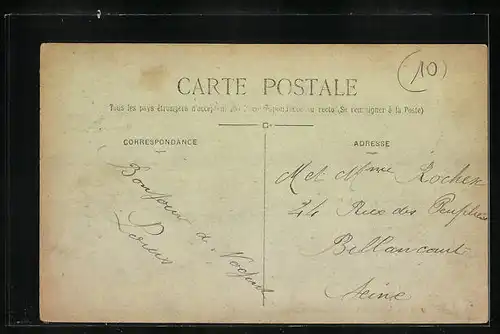 (10)
CARTE POSTALE
Tous les pays étrangers n'acceptent pas la correspondance au recto (Se renseigner à la Poste)
CORRESPONDANCE
ADRESSE
Bonjour de Nogent
M et Mme Rocher
24 Rue des Peupliers
Billancourt
Seine